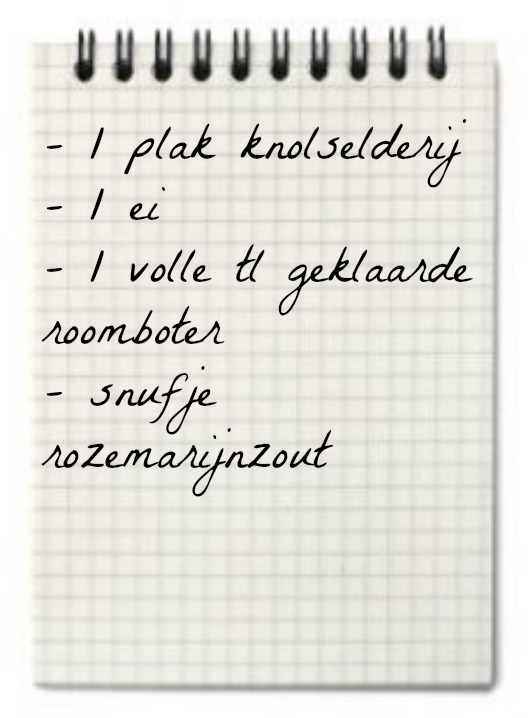 - 1 plak knolselderij
- 1 ei
- 1 volle tl geklaarde
roomboter
- snufje
rozemarijnzout